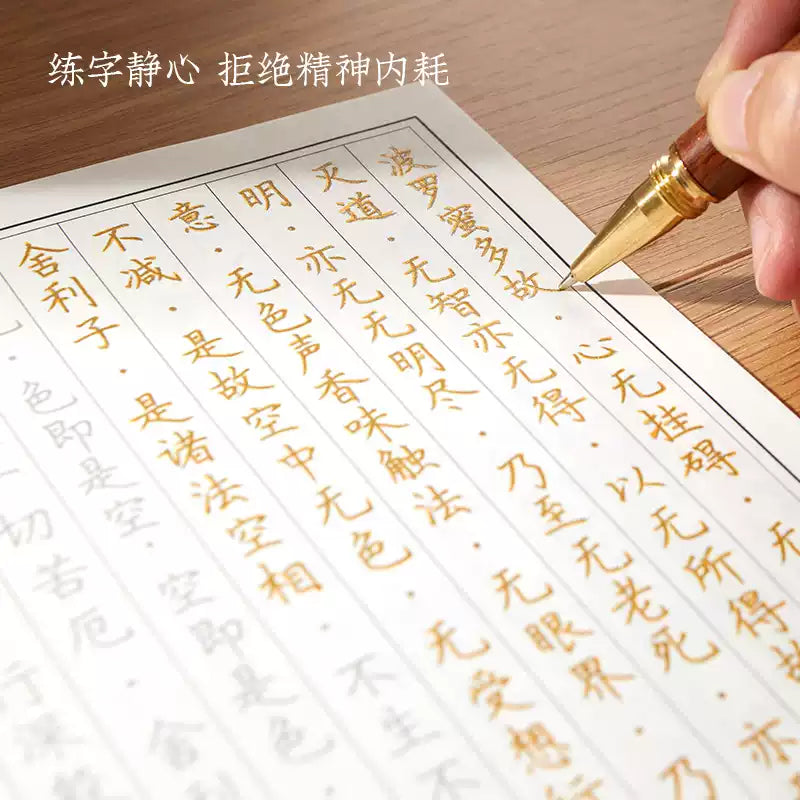 练字静心 拒绝精神内耗
行深
切苦厄·舍利
·色即是空·空即是色
舍利子·是诸法空相·不生不
不减·是故空中无色·无受想行
意·无色声香味触法·无眼界·乃
明·亦无无明尽·乃至无老死·亦
灭道·无智亦无得·以无所得故
波罗蜜多故·心无挂碍·无